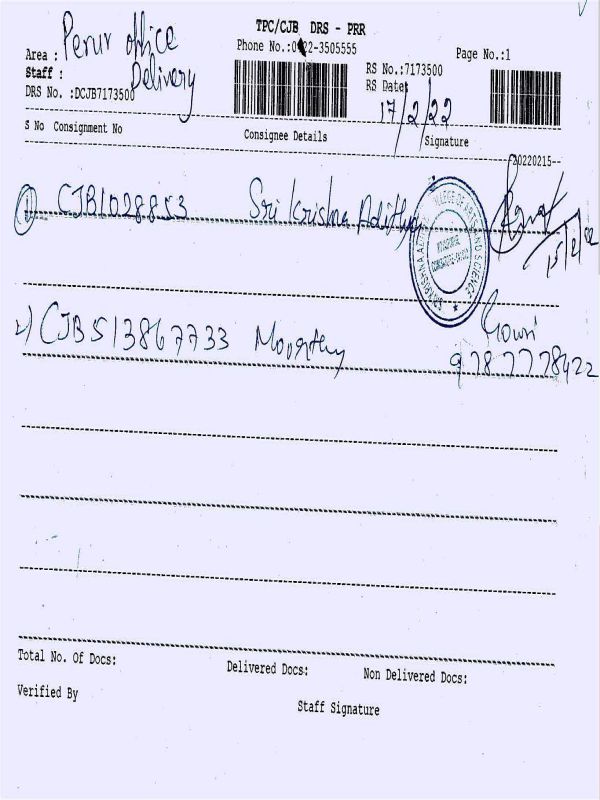 TPC/CJB DRS - PRR
Area : Perur office
Phone No.:0422-3505555
Page No.:1
Staff : Delivery
RS No.:7173500
DRS No. :DCJB7173500
RS Date: 17/2/22
S No Consignment No Consignee Details Signature
20220215--
1) CJB1028853 Sri Krishna Adithya
15/2/22
2) CJB513867733 Moorthy Gowri
9787778422
Total No. Of Docs: Delivered Docs: Non Delivered Docs:
Verified By Staff Signature